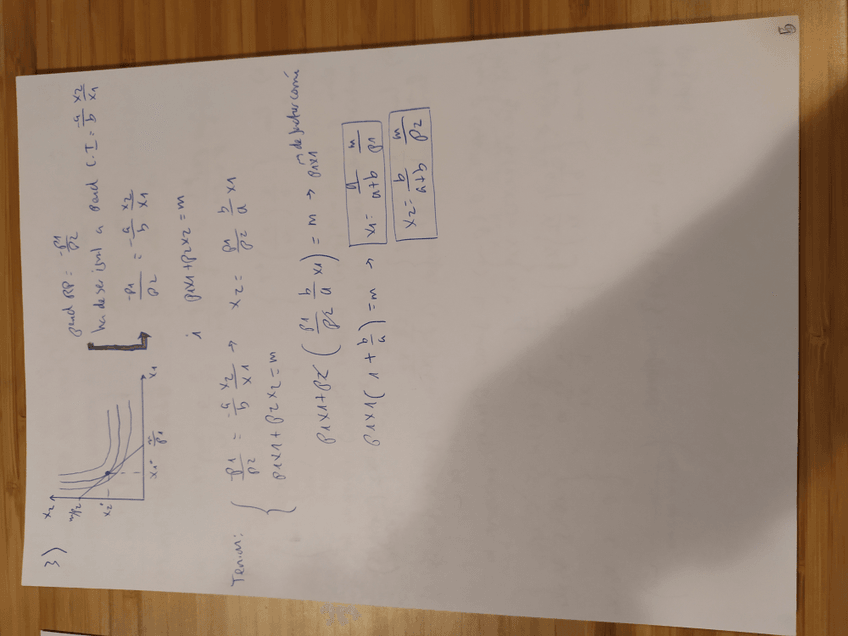 3)
x2
m/p2
x2*
x1* m/p1 x1
pend RP = -p1/p2
ha de ser igual a pend C.I = -a/b x2/x1
-p1/p2 = -a/b x2/x1
i p1x1+p2x2=m
Tenim:
{ -p1/p2 = -a/b x2/x1 → x2 = p1/p2 b/a x1
p1x1+p2x2=m
p1x1+p2 (p1/p2 b/a x1) = m → p1x1 de factor comú
p1x1(1+b/a)=m → x1= a/a+b m/p1
x2= b/a+b m/p2
5